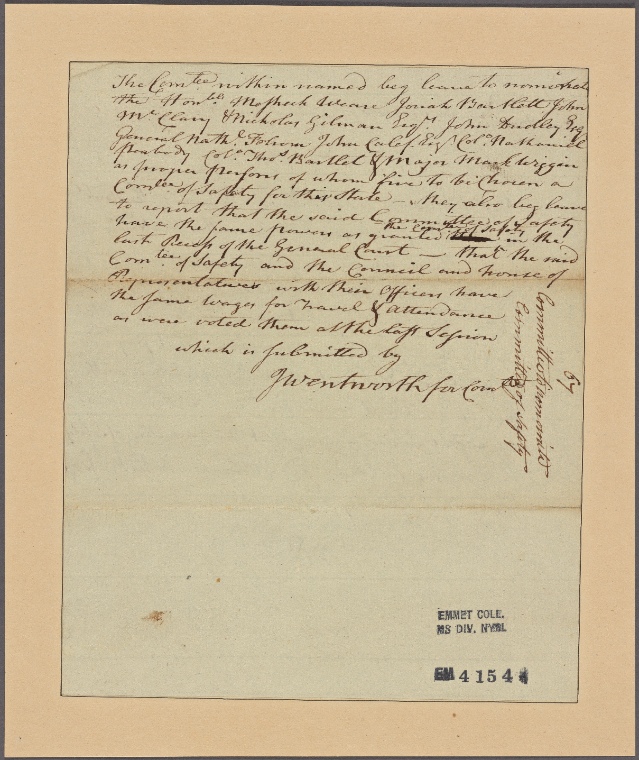 The Comtee within named beg leave to nominate
the Honble Meshech Weare Josiah Bartlett John
McClary & Nicholas Gilman Esqrs John Dudley Esq
General Nathl Folsom John Calef Esqr Colo Nathaniel
Peabody Colo Thos Bartlet & Major Mark Wiggin
as proper persons of whom five to be chosen a
Comtee of Safety for this State – they also beg leave
to report that the said Committee of Safety
have the same powers as granted the Comtee of Safety in the
last Recess of the General Court – that the said
Comtee of Safety and the Council and house of
Representatives with their Officers have
the same wages for Travel & Attendance
as were voted them at the last Session
which is submitted by
J Wentworth for Comtee
Committee to nominate
Committee of Safety
67
EMMET COLL.
MS DIV. NYPL
EM 4154